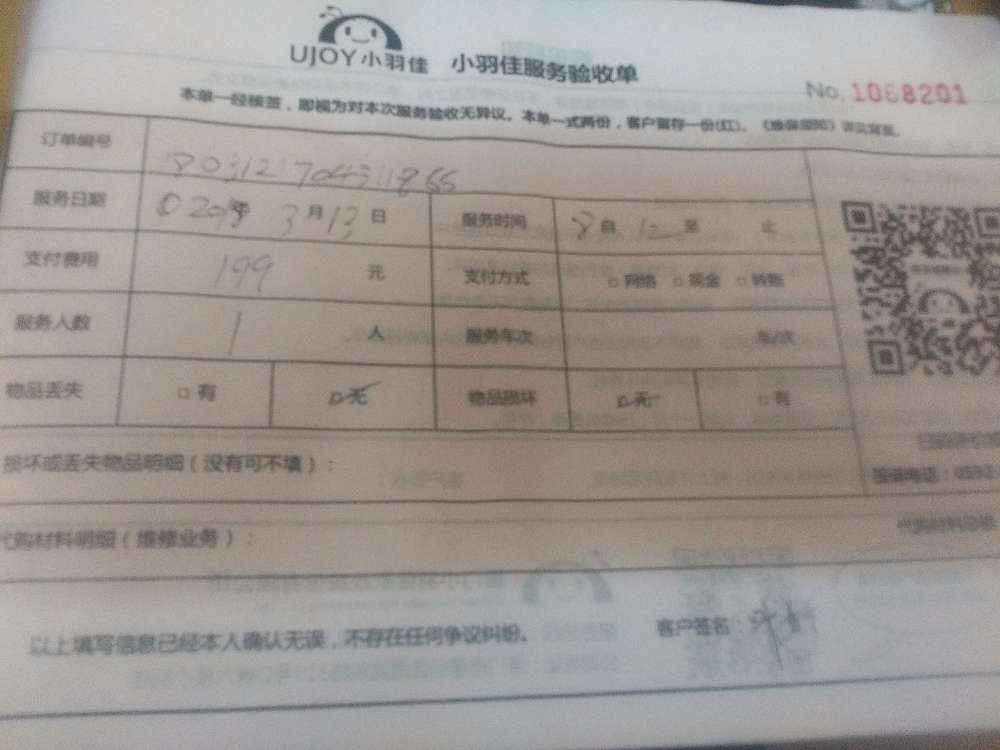 UJOY小羽佳 小羽佳服务验收单
No. 1068201
本单一经核签，即视为对本次服务验收无异议。本单一式两份，客户留存一份(红)。《维保须知》详见背面。
订单编号
服务日期 3月13日 服务时间 8自12至 止
支付费用 199 元 支付方式 □网络 □现金 □转账
服务人数 1 人 服务车次 车/次
物品丢失 □有 □无 物品损坏 □无 □有
损坏或丢失物品明细（没有可不填）：
代购材料明细（维修业务）：
以上填写信息已经本人确认无误，不存在任何争议纠纷。 客户签名